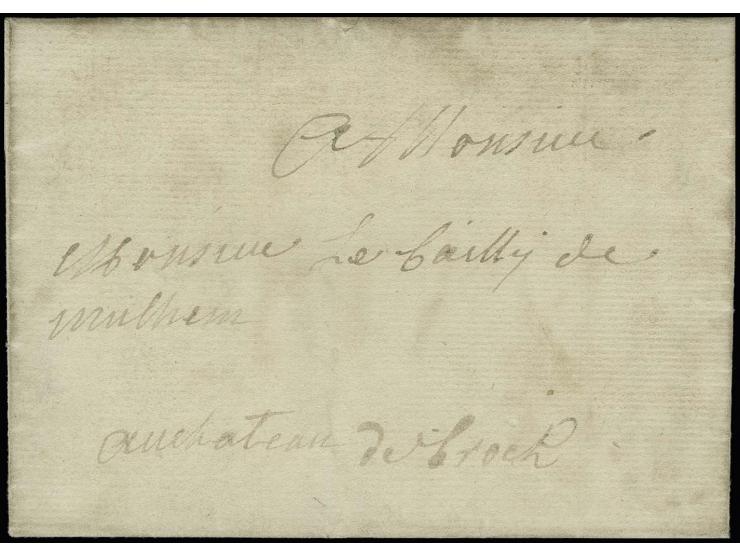 A Monsieur
Monsieur Le bailly de
mulhem
au chateau de broch